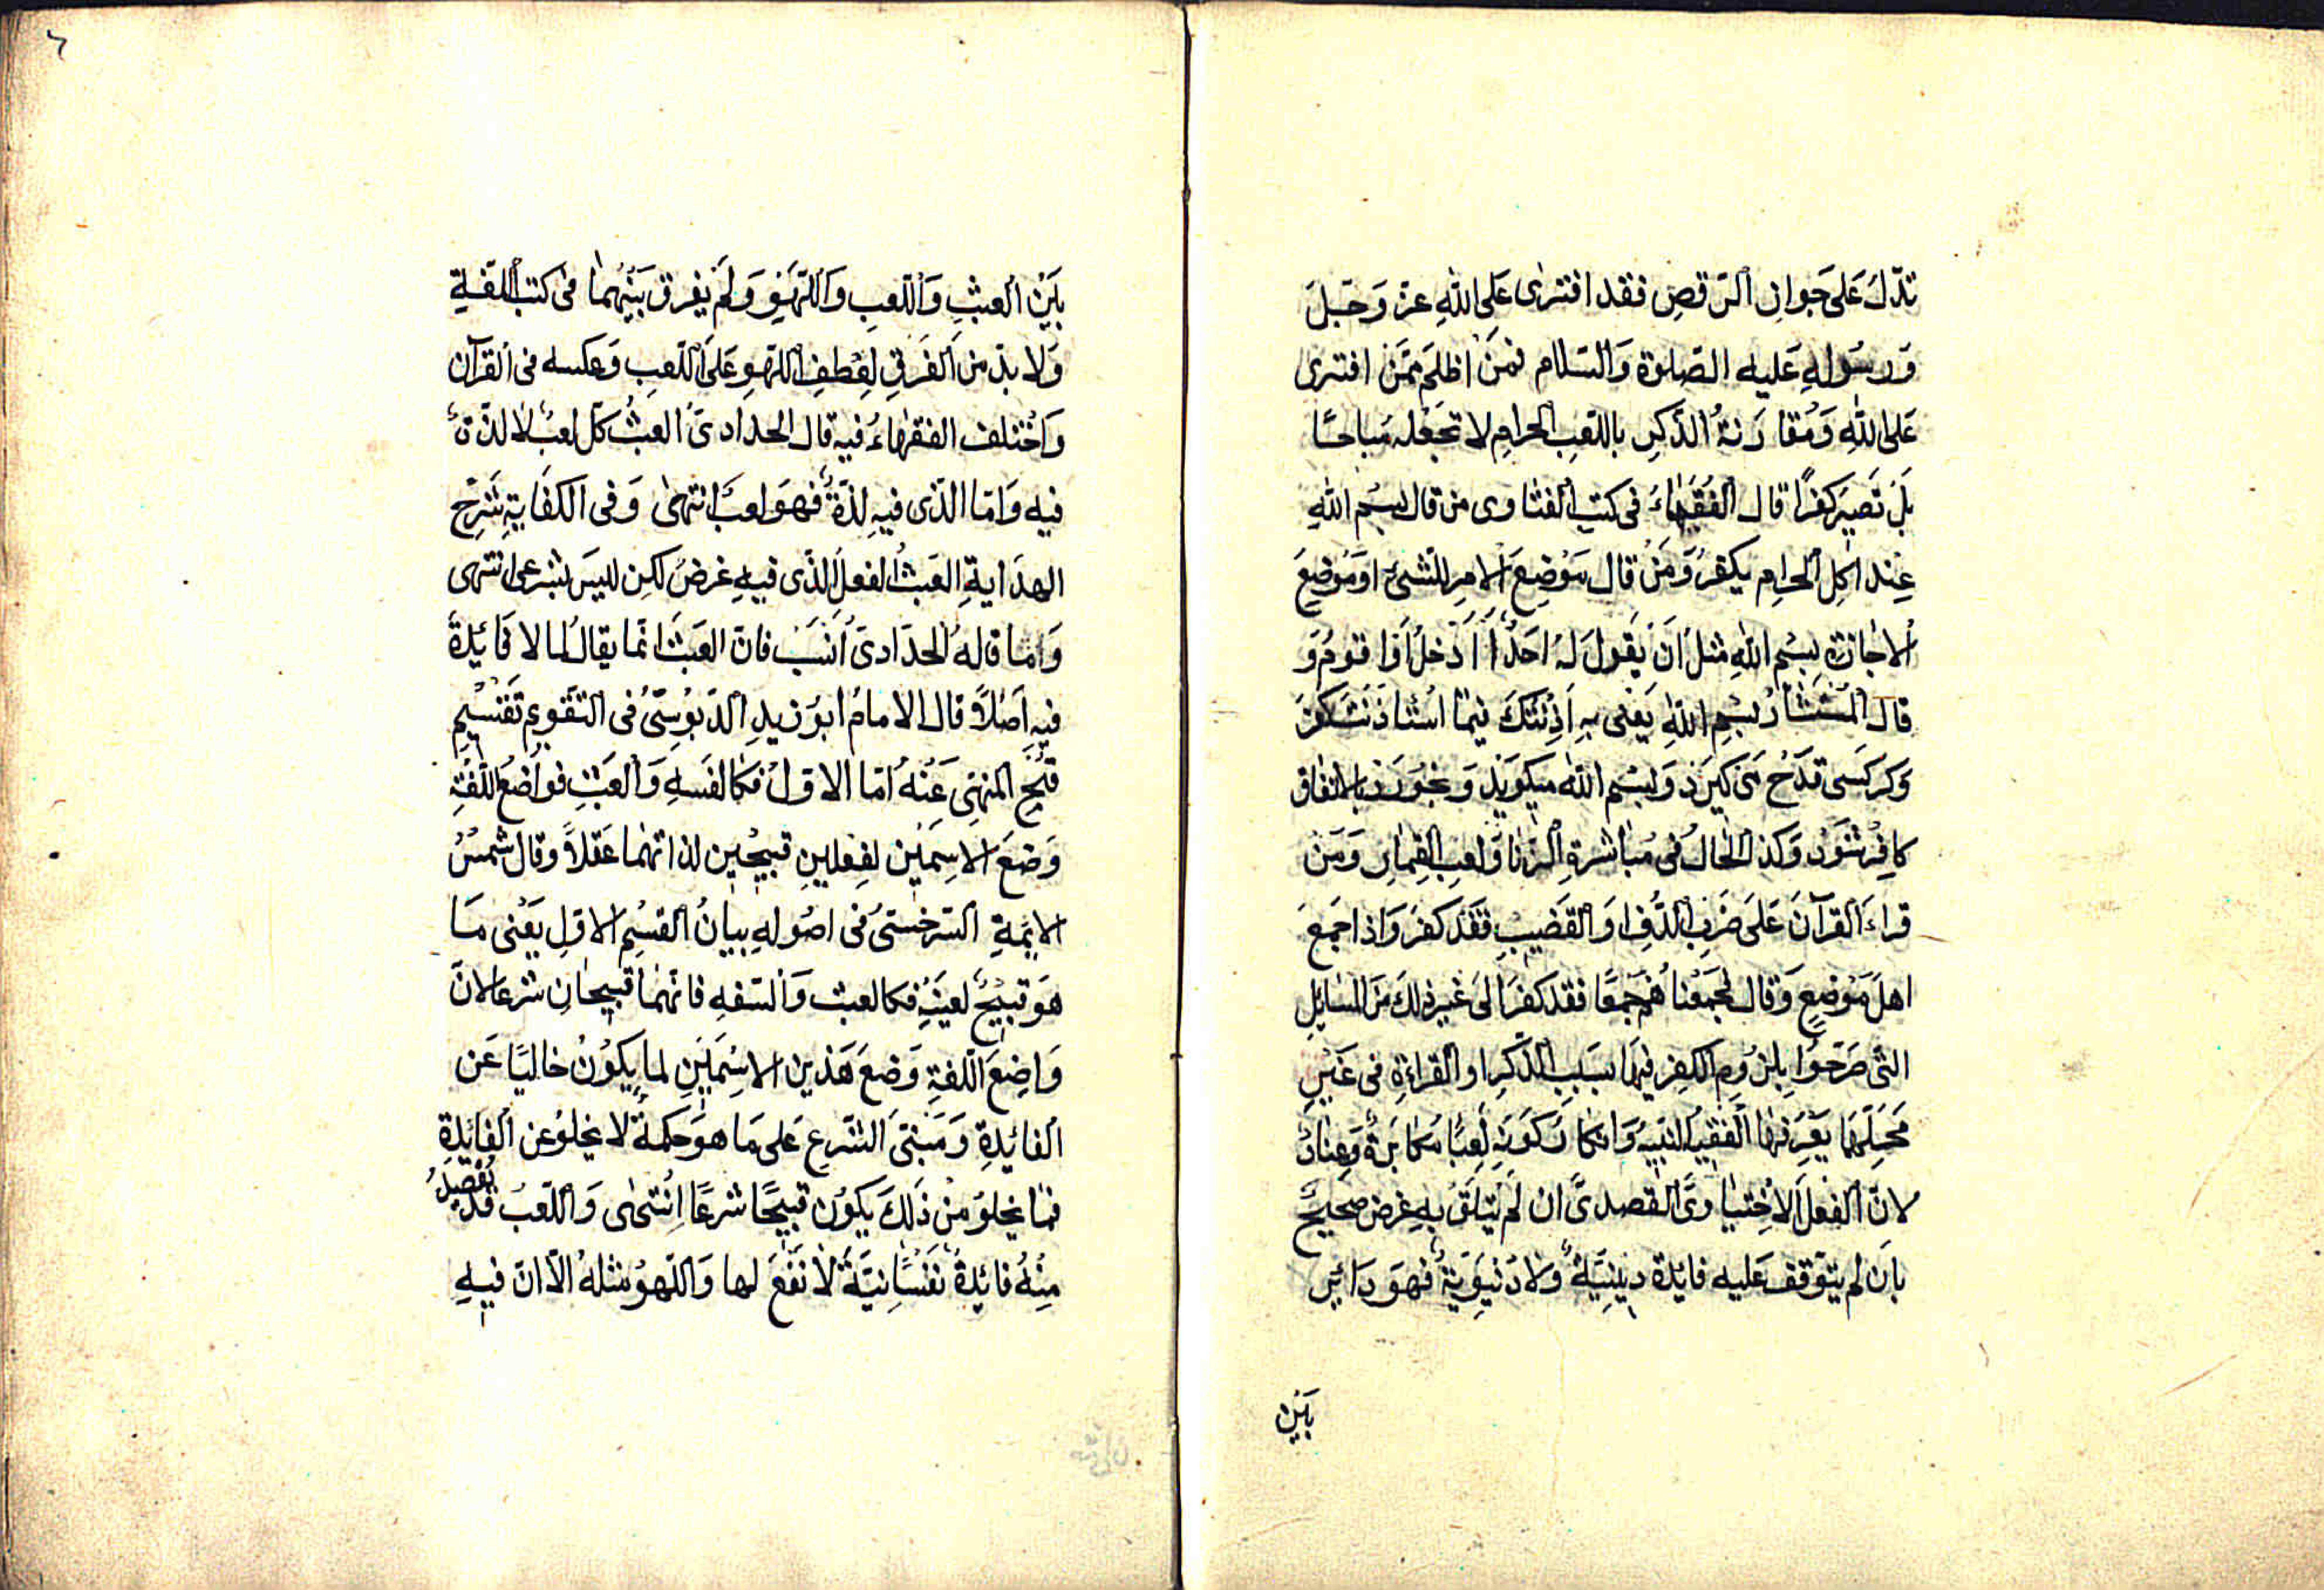 تدّل عَلى جَواز الرّقصِ فقد افترى عَلى اللهِ عزّ وَجَلّ
وَرسُولهِ عَليه الصّلوة وَالسّلام فمَنْ اظلَم ممَّن افترى
عَلى اللهِ وَمُقارَنةُ الذّكرِ باللّعِب الحرامِ لا تجَعْله مُباحًا
بَلْ تَصيَر كفرًا قال الفُقَهَاءُ فى كتبِ الفتاوى من قال بسْم اللهِ
عِند اكلِ الحرامِ يكفرُ وَمَنْ قال مَوْضِعَ الامرِ للشئ اوَمَوْضِعَ
الاجَازةِ بِسْمِ اللهِ مثلَ اَنْ يَقُولَ لهُ احَدٌ أَأَدْخلُ اَوْ اقوُمُ وَ
قال المُسْتشَارُ بسْمِ اللهِ يَعْنى بهِ اَذِنْتكَ فيمَا اسْتاذَنْتَ كفرَ
وَكر كسَى قدَحْ مَى كيرَدْ وَبسْم اللهْ ميكويَدْ وَبخورَدْ بالاتفاق
كافِرْ شوَدْ وَكذا الحَالُ فى مُبَاشرةِ الزنا وَلعِب القِمارِ وَمَن
قراءَ القرآنَ عَلى ضَربِ الدُّفِ اوَ القَضِيبِ فقَدْ كفَر وَاذا جَمعَ
اهلَ مَوْضعٍ وَقال فجَمعْناهُمْ جَمعًا فقد كفرَ الى غير ذلكَ مَن المسَايلِ
التّى صَرّحوُا بِلزُومِ الكفرِ فيمَا بسَببِ الذّكرِ اوالقراءةِ فى غَيْرِ
مَحَلّهمَا يَعْرِفهَا الفقيهُ النّبيهُ وَانكارُ كوَنهِ لَعِبًا مكابَرةٌ وَعِنادٌ
لانّ الفعْلَ الاخِتيارىَّ القصدىَّ ان لَمْ يَتعَلّقْ بهِ غرضٌ صحيحٌ
باَن لم يتوَقفْ عَليه فايدة دِينيّةٌ وَلا دُنيَوِيّةٌ فهوَ دَائر
بَيْن
٦
بَيْن العبثِ وَاللّعبِ وَاللّهْوِ وَلَم يفرق بَيْنَهمَا فى كتب اللغةِ
وَلا بدّ من الفَرْقِ لِعَطفِ اللّهوِ عَلى اللّعبِ وَعكسه فى القرآن
وَاختلف الفقهَاءُ فيه قال الحدادىّ العبثُ كلّ لعبٌ لا لذّةَ
فيه وَامّا الّذى فيهِ لذّةٌ فهوَ لعبٌ انتهىٰ وَفى الكفَايةِ شَرحْ
الهدَايةِ العَبثُ الفعلُ الذّى فيهِ غرضٌ لكن لَيسَ بشرعى انتهى
وَامّا قالهُ الحدّادىّ اَنسَبُ فانّ العَبثَ انمّا يقالُ لما لا فَائِدةَ
فيهِ اَصْلاً قال الامامُ ابوُ زيدٍ الدّبوُسىّ فى التقويم تَقسْيمِ
قبْحِ المنهىِ عَنهُ امّا الاوّلُ فكالسفَهِ وَالعَبثِ فوَاضعُ اللّغةِ
وَضعَ الاسِمَيْن لفِعليْنِ قبيحْين لذاتهمَا عَقلاً وَقال شمسُ
الايمةِ السّرخسىّ فى اصُولهِ بيانُ القسْمِ الاوّلِ يَعْنى مَا
هوَ قبيحٌ لعَينهِ فكالعبث وَالسّفهِ فانّهمَا قبيحَانِ شرعا لانّ
وَاضِعَ اللّغةِ وَضعَ هَذين الاسْمَيْنِ لما يكوُنُ خاليًا عَن
الفائدةِ وَمَبنىَ الشّرعِ عَلى مَا هوَ حكمةٌ لا يخلوُ عن الفائدةِ
فمَا يخلوُ مِنْ ذَلكَ يكوُن قبيحًا شرعًا اِنتهَى وَاللّعبُ قدْ يُقصدُ
مِنْهُ فائِدةٌ نَفْسَانيّةٌ لا نَفْعَ لها وَاللّهوُ مثلهُ الّا انّ فيهِ